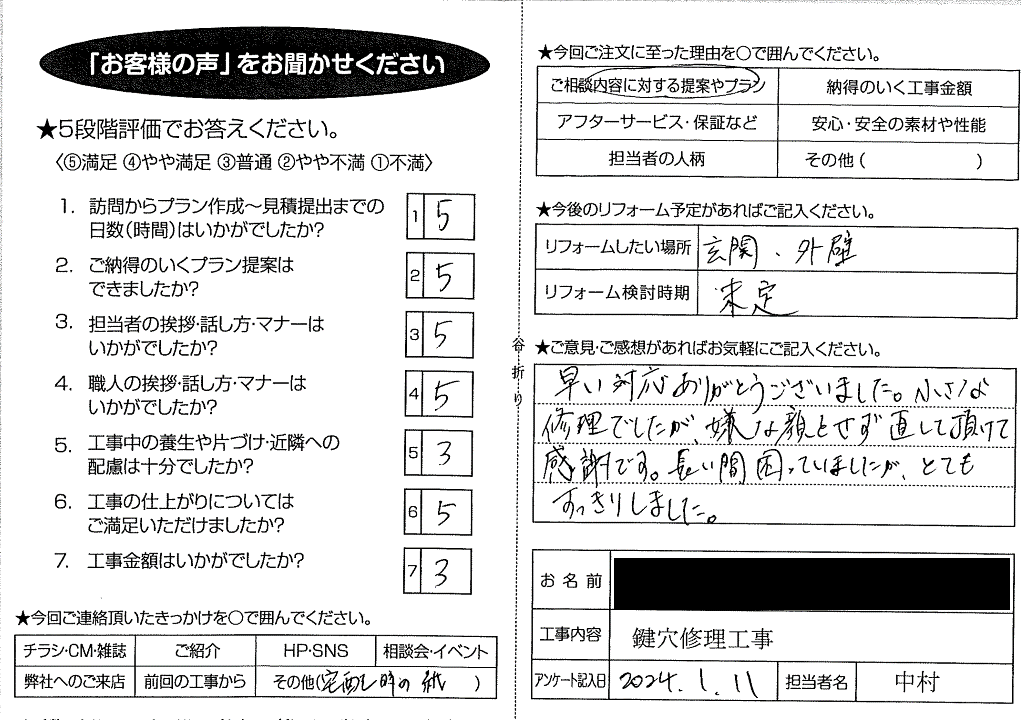 「お客様の声」をお聞かせください
★5段階評価でお答えください。
〈⑤満足 ④やや満足 ③普通 ②やや不満 ①不満〉
1. 訪問からプラン作成〜見積提出までの
日数(時間)はいかがでしたか?
1 5
2. ご納得のいくプラン提案は
できましたか?
2 5
3. 担当者の挨拶・話し方・マナーは
いかがでしたか?
3 5
4. 職人の挨拶・話し方・マナーは
いかがでしたか?
4 5
5. 工事中の養生や片づけ・近隣への
配慮は十分でしたか?
5 3
6. 工事の仕上がりについては
ご満足いただけましたか?
6 5
7. 工事金額はいかがでしたか?
7 3
★今回ご連絡頂いたきっかけを○で囲んでください。
チラシ・CM・雑誌 ご紹介 HP・SNS 相談会・イベント
弊社へのご来店 前回の工事から その他( し時の紙 )
谷折り
★今回ご注文に至った理由を○で囲んでください。
ご相談内容に対する提案やプラン 納得のいく工事金額
アフターサービス・保証など 安心・安全の素材や性能
担当者の人柄 その他( )
★今後のリフォーム予定があればご記入ください。
リフォームしたい場所 玄関、外壁
リフォーム検討時期 未定
★ご意見・ご感想があればお気軽にご記入ください。
早い対応ありがとうございました。小さな
修理でしたが、嫌な顔とせず直して頂けて
感謝です。長い間困っていましたが、とても
すっきりしました。
お名前
工事内容 鍵穴修理工事
アンケート記入日 2024.1.11 担当者名 中村